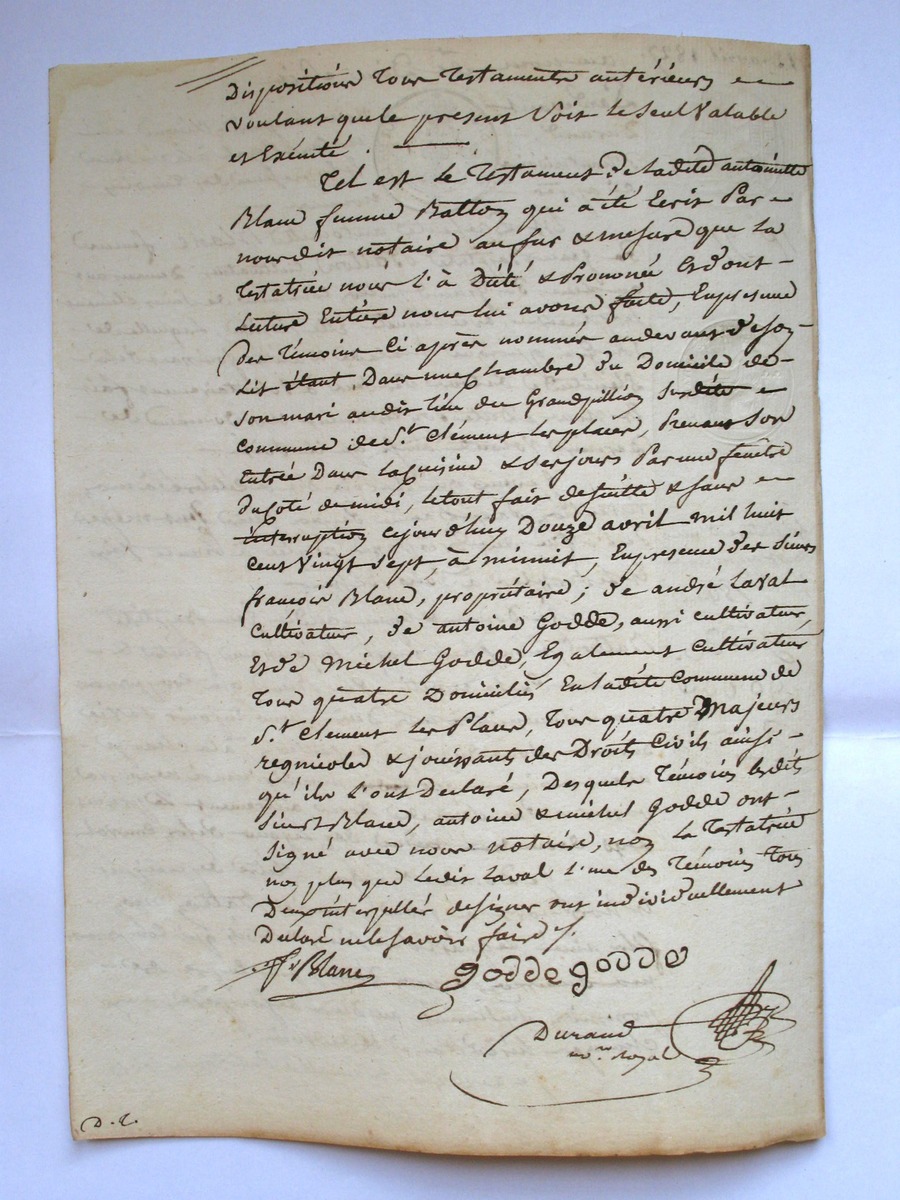 Dispositions tous testaments antérieurs
voulant que le présent soit le seul valable
et Exécuté.
Tel est le testament de ladite antoinette
Blanc femme Batton qui a été Ecrit Par
nous dit notaire au fur & mesure que la
testatrice nous l'à Dicté & Prononcé Et dont
Lecture Entière nous lui avons faite, En presence
des témoins Ci après nommés au devant de son
Lit étant Dans une Chambre du Domicile de
son mari au dit lieu du Grandpillon susdite
commune de St. Clément les places, Prenant son
Entrée Dans la Cuisine & ses jours Par une fenêtre
du Coté de midi, le tout fait de suitte & sans
interruption cejourd'huy Douze avril mil huit
cent Vingt Sept, à minuit, En presence des sieurs
françois Blanc, propriétaire; de andré Laval
Cultivateur, de antoine Godde, aussi cultivateur,
Et de Michel Godde, Egalement cultivateur
tous quatre Domiciliés En ladite Commune de
St. Clement les Places, tous quatre Majeurs
regnicoles & jouissants des Droits Civils ainsi
qu'ils l'ont Declaré, Desquels témoins lesdits
Sieurs Blanc, antoine & michel Godde ont
Signé avec nous notaire, non la testatrice
non plus que ledit Laval l'un des témoins tous
Deux interpellés de signer ont individuellement
Declaré ne le savoir faire /.
fs Blanc godde godde
Durand
nore royal
D. L.